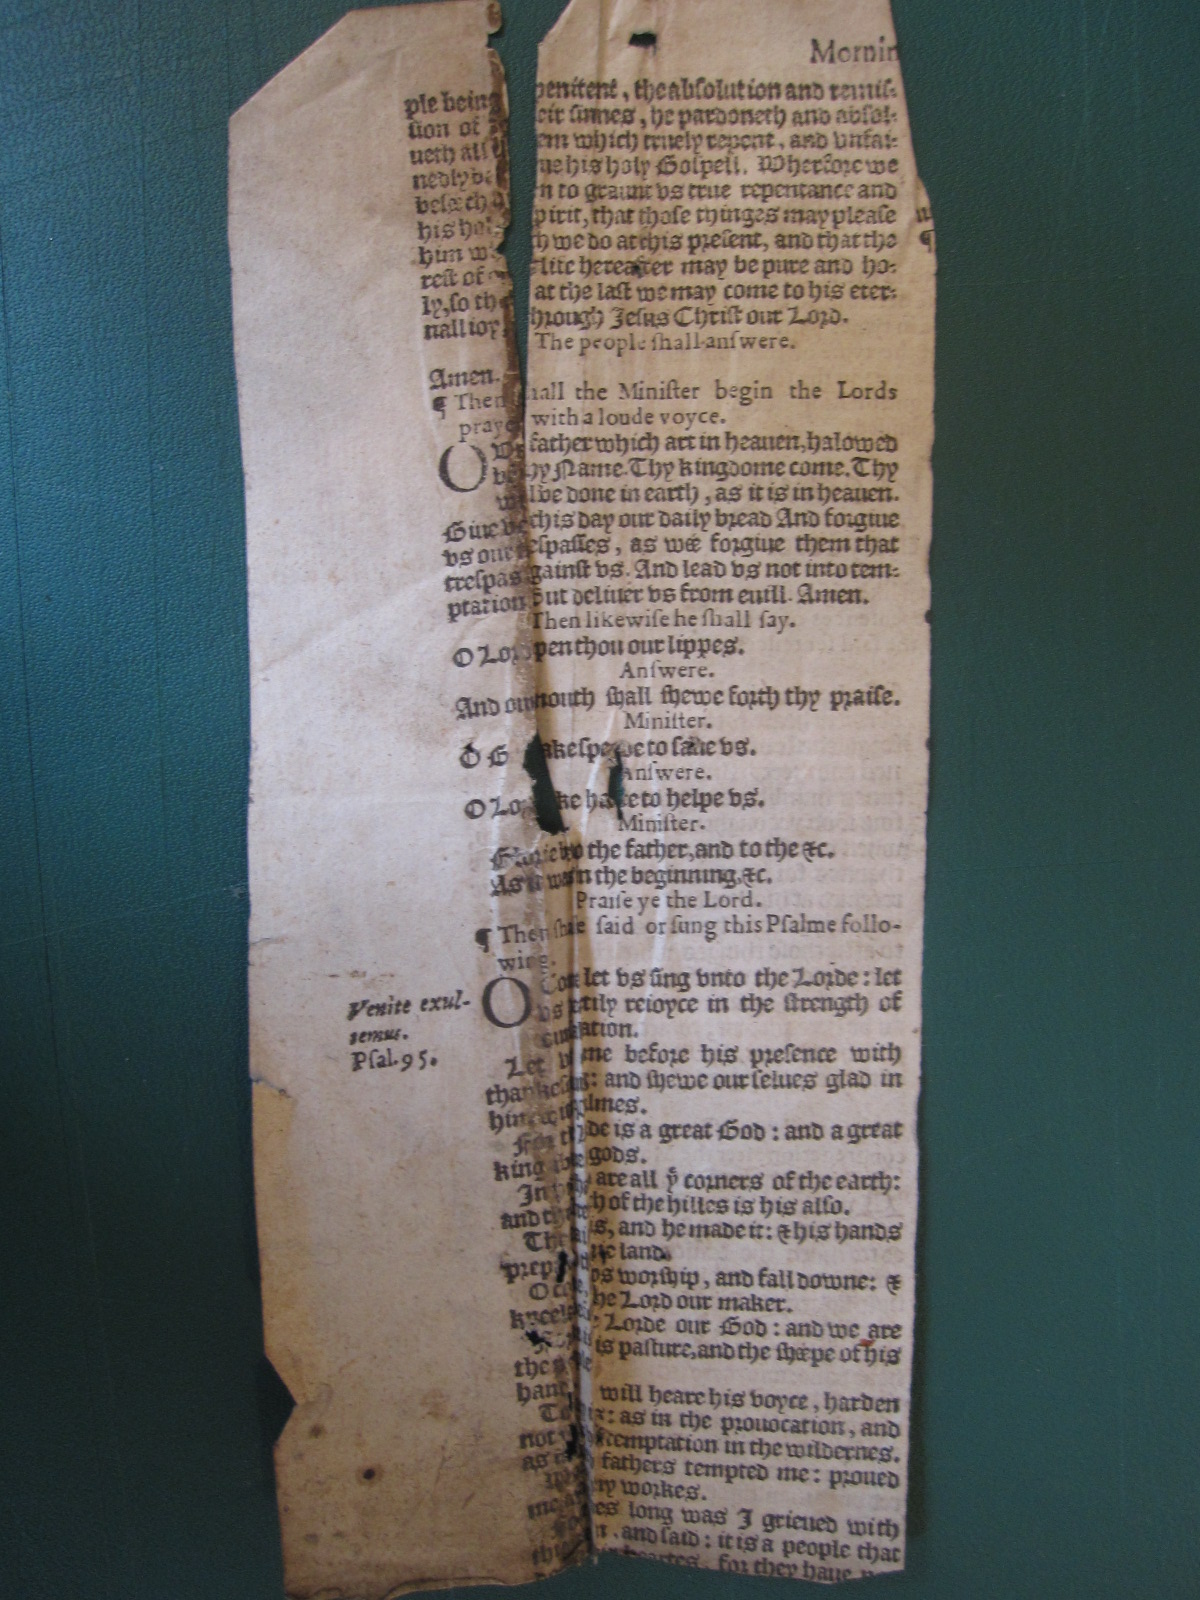 Mornin
ple being penitent, the absolution and remis-
sion of eir sinnes, he pardoneth and absol-
ueth all em which truely repent, and vnfai-
nedly be ue his holy Gospell. Wherfore we
beséech n to graunt vs true repentance and
his hol pirit, that those thinges may please
him w h we do at this present, and that the
rest of life hereafter may be pure and ho-
ly, so th at the last we may come to his eter-
nall ioy, hrough Jesus Christ our Lord.
The people shall answere.
Amen.
¶ Then hall the Minister begin the Lords
praye with a loude voyce.
OVr father which art in heauen, halowed
be hy Name. Thy kingdome come. Thy
wil be done in earth, as it is in heauen.
Giue vs this day our daily bread And forgiue
vs our espasses, as wée forgiue them that
trespas gainst vs. And lead vs not into tem-
ptation but deliuer vs from euill. Amen.
Then likewise he shall say.
O Lord pen thou our lippes.
Answere.
And our mouth shall shewe forth thy praise.
Minister.
O G ake spe e to saue vs.
Answere.
O Lo ke ha te to helpe vs.
Minister.
Glorie to the father, and to the &c.
As it was in the beginning, &c.
Praise ye the Lord.
¶ Then shal e said or sung this Psalme follo-
wing.
O Come let vs sing vnto the Lorde: let
vs rtily reioyce in the strength of
our uation.
Venite exul-
temus.
Psal. 95.
Let v me before his presence with
thankes : and shewe our selues glad in
him w lmes.
For th de is a great God: and a great
king gods.
In h are all yͤ corners of the earth:
and th h of the hilles is his also.
The is, and he made it: & his hands
prep e land.
O co vs worship, and fall downe: &
kneel he Lord our maker.
Lorde our God: and we are
the is pasture, and the shéepe of his
hand
To will heare his voyce, harden
not : as in the prouocation, and
as temptation in the wildernes.
fathers tempted me: proued
me my workes.
Fo es long was I grieued with
thi n, and said: it is a people that
heartes, for they haue